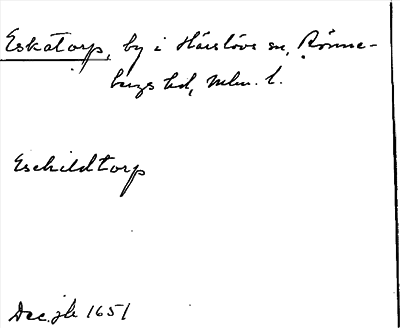 Eskatorp, by i Härslövs sn, Rönne-
bergs hd, Mlm. l.
Eschildtorp
Dec.jb 1651